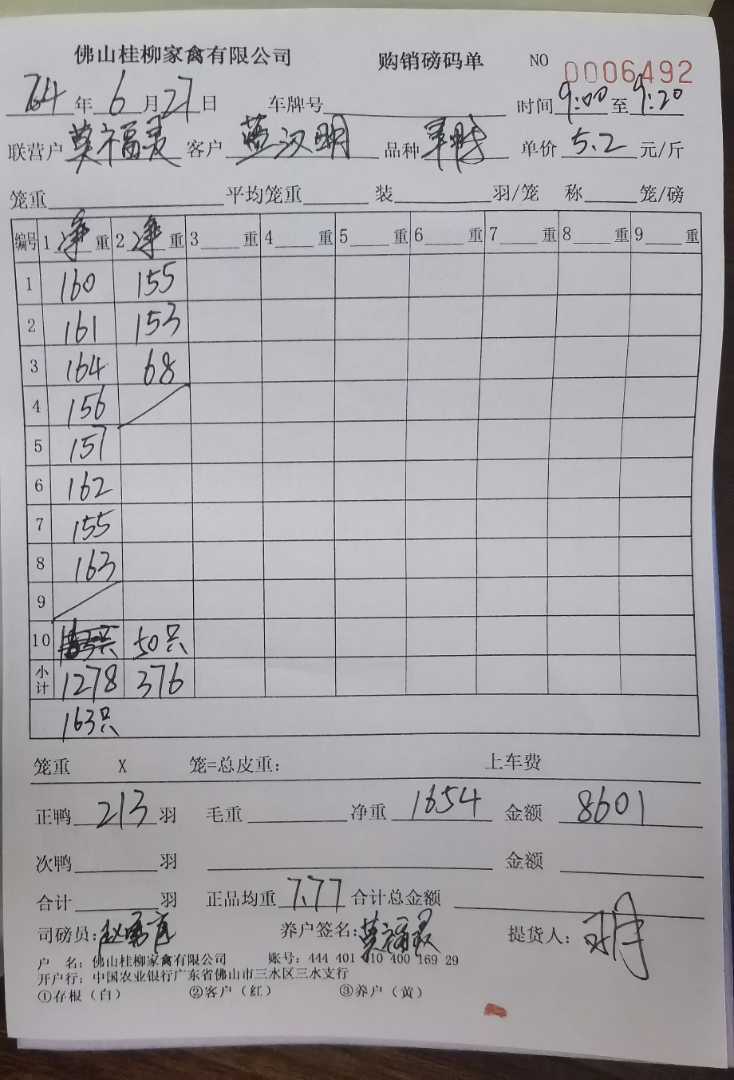 佛山桂柳家禽有限公司 购销磅码单 NO 0006492
年 6 月 27 日 车牌号 时间 9:00 至 9:20
联营户 莫福灵 客户 蓝汉明 品种 单价 5.2 元/斤
笼重 平均笼重 装 羽/笼 称 笼/磅
编号 1 净 重 2 净 重 3 重 4 重 5 重 6 重 7 重 8 重 9 重
1 160 155
2 161 153
3 164 68
4 156
5 157
6 162
7 155
8 163
9
10 50只
小计 1278 376
163只
笼重 X 笼=总皮重: 上车费
正鸭 213 羽 毛重 净重 1654 金额 8601
次鸭 羽 金额
合计 羽 正品均重 7.77 合计总金额
司磅员: 养户签名: 莫福灵 提货人:
户 名: 佛山桂柳家禽有限公司 账号: 444 401 010 400 169 29
开户行: 中国农业银行广东省佛山市三水区三水支行
①存根（白） ②客户（红） ③养户（黄）